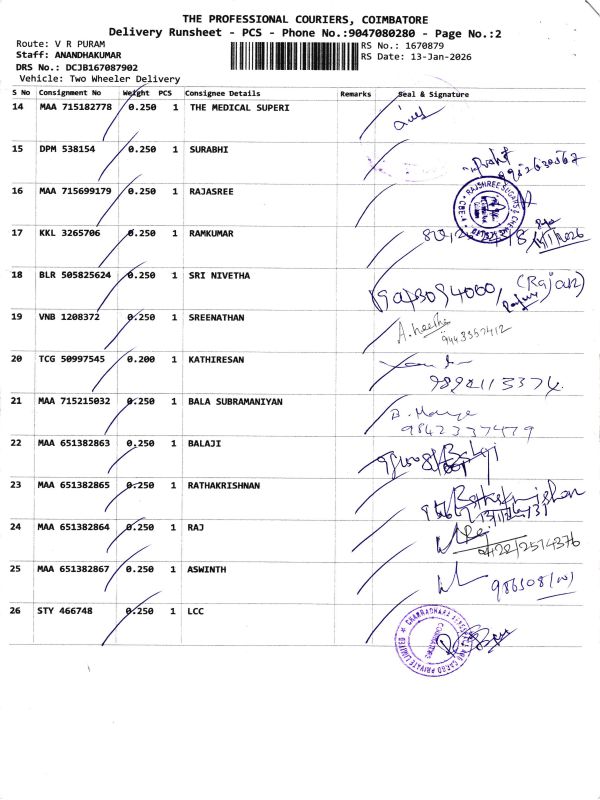 THE PROFESSIONAL COURIERS, COIMBATORE
Delivery Runsheet - PCS - Phone No.:9047080280 - Page No.:2
Route: V R PURAM
Staff: ANANDHAKUMAR
DRS No.: DCJB167087902
Vehicle: Two Wheeler Delivery
RS No.: 1670879
RS Date: 13-Jan-2026
S No Consignment No Weight PCS Consignee Details Remarks Seal & Signature
14 MAA 715182778 0.250 1 THE MEDICAL SUPERI
15 DPM 538154 0.250 1 SURABHI
16 MAA 715699179 0.250 1 RAJASREE
17 KKL 3265706 0.250 1 RAMKUMAR
18 BLR 505825624 0.250 1 SRI NIVETHA (Rajan)
19 VNB 1208372 0.250 1 SREENATHAN
9443357412
20 TCG 50997545 0.200 1 KATHIRESAN
9892113374.
21 MAA 715215032 0.250 1 BALA SUBRAMANIYAN
9842337479
22 MAA 651382863 0.250 1 BALAJI Balaji
23 MAA 651382865 0.250 1 RATHAKRISHNAN
24 MAA 651382864 0.250 1 RAJ Raj
25 MAA 651382867 0.250 1 ASWINTH
26 STY 466748 0.250 1 LCC